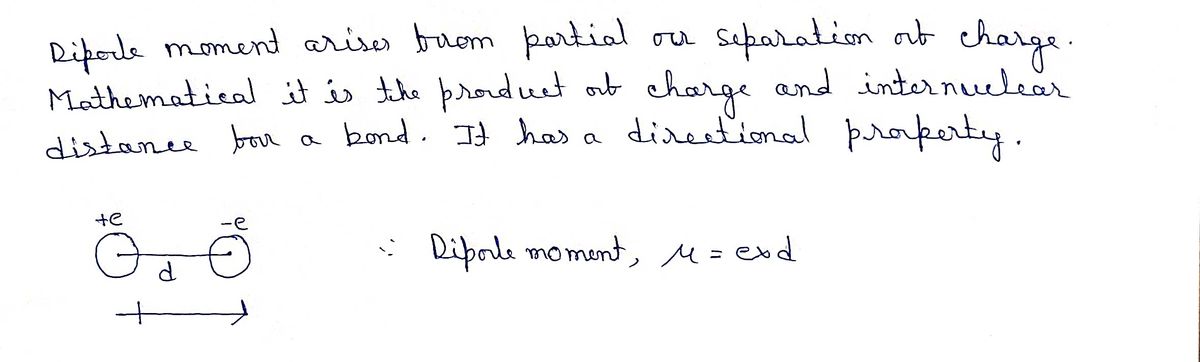 Dipole moment arises from partial or separation of charge.
Mathematical it is the product of charge and internuclear
distance for a bond. It has a directional property.
+e -e
d
∵ Dipole moment, μ = e×d